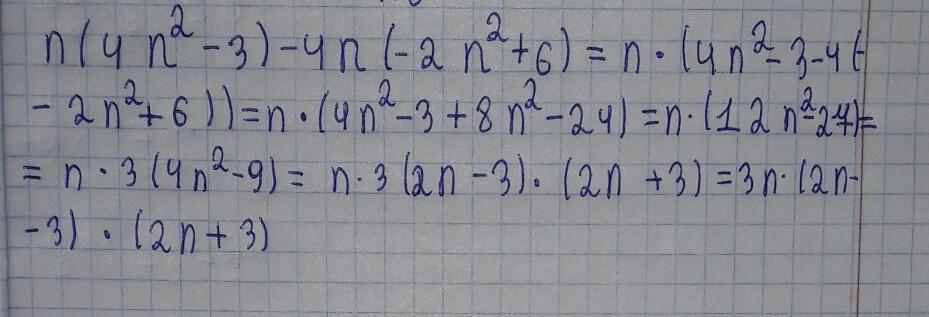 n(4n²-3)-4n(-2n²+6)=n·(4n²-3-4(-
-2n²+6))=n·(4n²-3+8n²-24)=n·(12n²-27)=
=n·3(4n²-9)=n·3(2n-3)·(2n+3)=3n·(2n-
-3)·(2n+3)